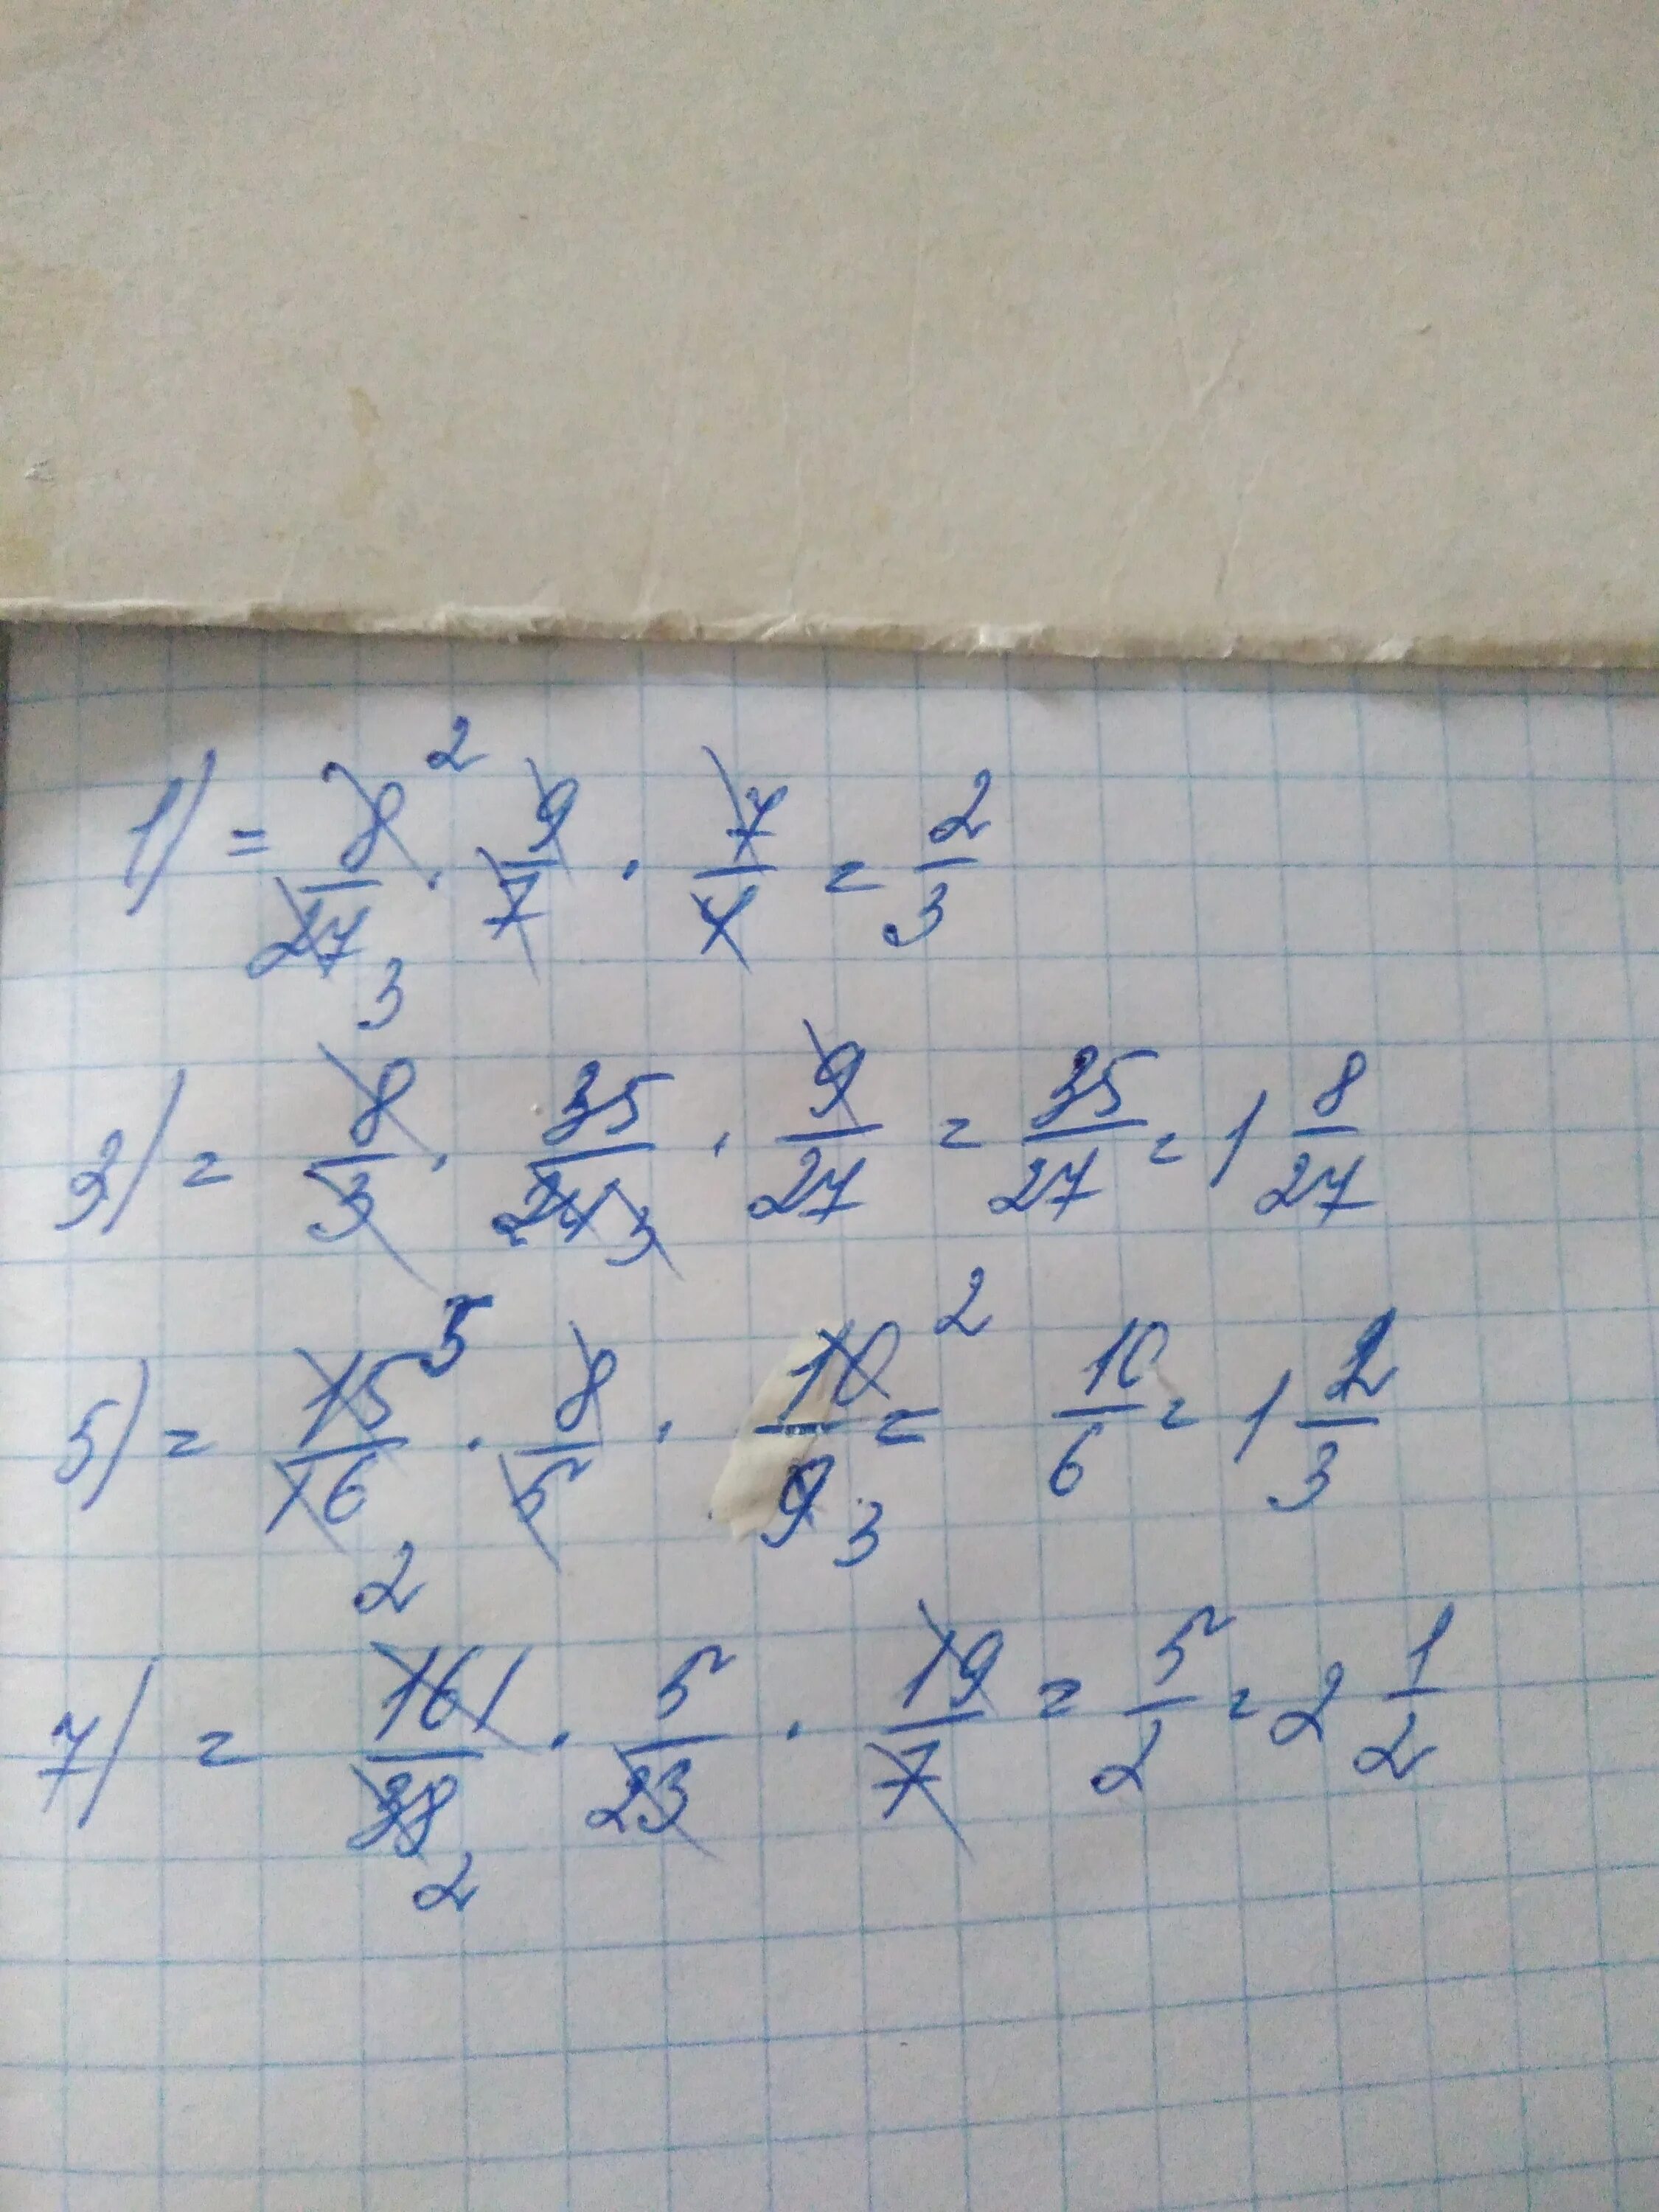 1) = 8/27 2 3 · 9/7 · 7/4 = 2/3
3) = 8/3 · 35/24 3 · 9/27 = 35/27 = 1 8/27
5) = 15/16 5 2 · 8/5 · 10/9 2 3 = 10/6 = 1 2/3
7) = 161/38 2 · 5/23 · 19/7 = 5/2 = 2 1/2